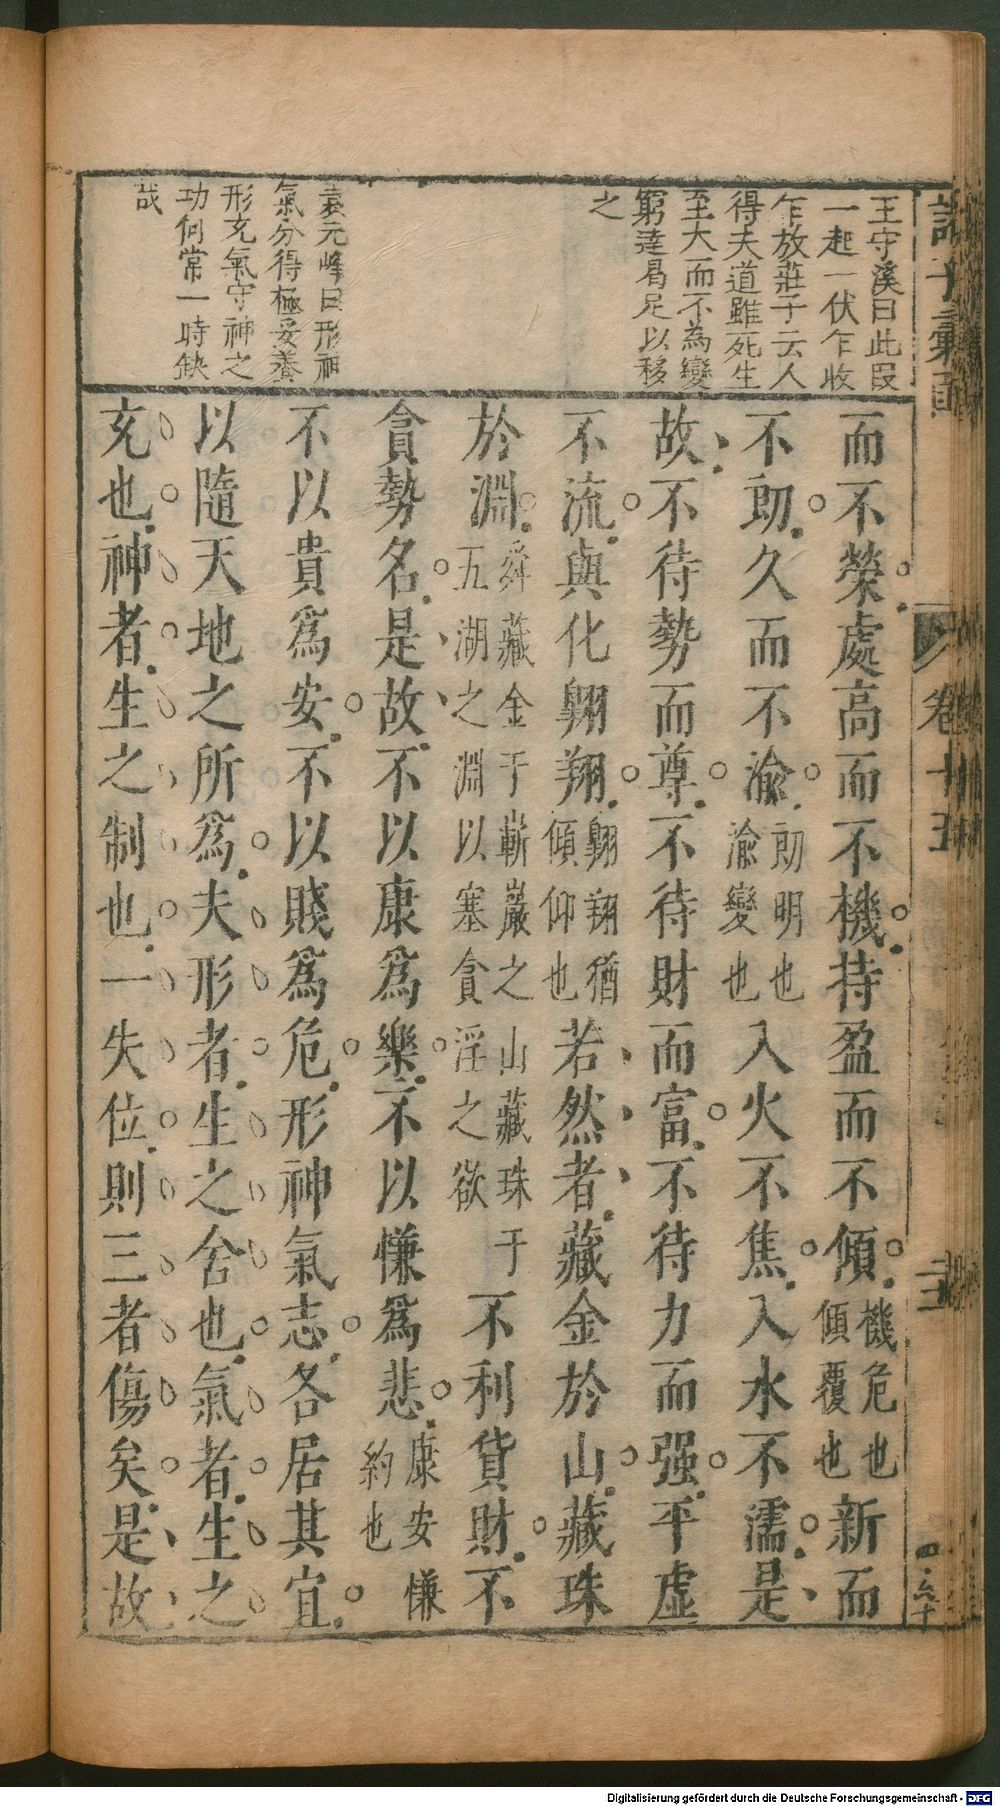 王守溪曰此叚
一起一伏乍收
乍放莊子云人
得夫道雖死生
至大而不為變
窮達曷足以移
之
袁元峰曰形神
氣分得極妥養
形充氣守神之
功何常一時缺
哉
而不榮處高而不機持盈而不傾機危也傾覆也新而
不朗久而不渝朗明也渝變也入火不焦入水不濡是
故不待勢而尊不待財而富不待力而强平虛
不流與化翺翔翺翔猶傾仰也若然者藏金於山藏珠
於淵舜藏金于嶄巖之山藏珠于五湖之淵以塞貪淫之欲不利貨財不
貪勢名是故不以康爲樂不以慊爲悲康安慊約也
不以貴爲安不以賤爲危形神氣志各居其宜
以隨天地之所爲夫形者生之舍也氣者生之
充也神者生之制也一失位則三者傷矣是故
卷十五
Digitalisierung gefördert durch die Deutsche Forschungsgemeinschaft - DFG